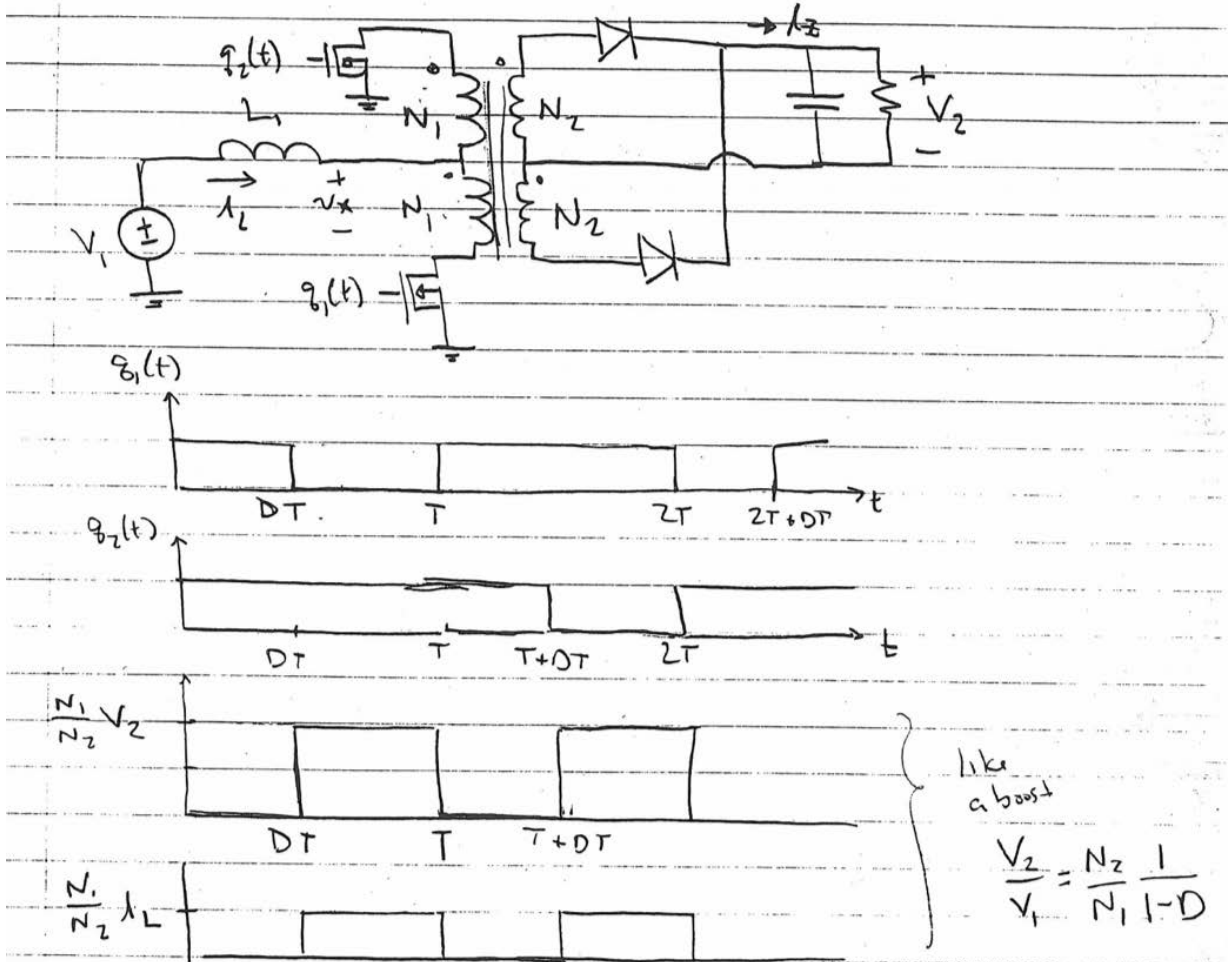 q₂(t)
L₁
N₁
N₂
i_z
+
V₂
−
V₁
i_L
+
v_x
−
N₁
N₂
q₁(t)
q₁(t)
DT
T
2T
2T+DT
t
q₂(t)
DT
T
T+DT
2T
t
N₁/N₂ V₂
DT
T
T+DT
like
a boost
V₂/V₁ = N₂/N₁ 1/(1-D)
N₁/N₂ i_L